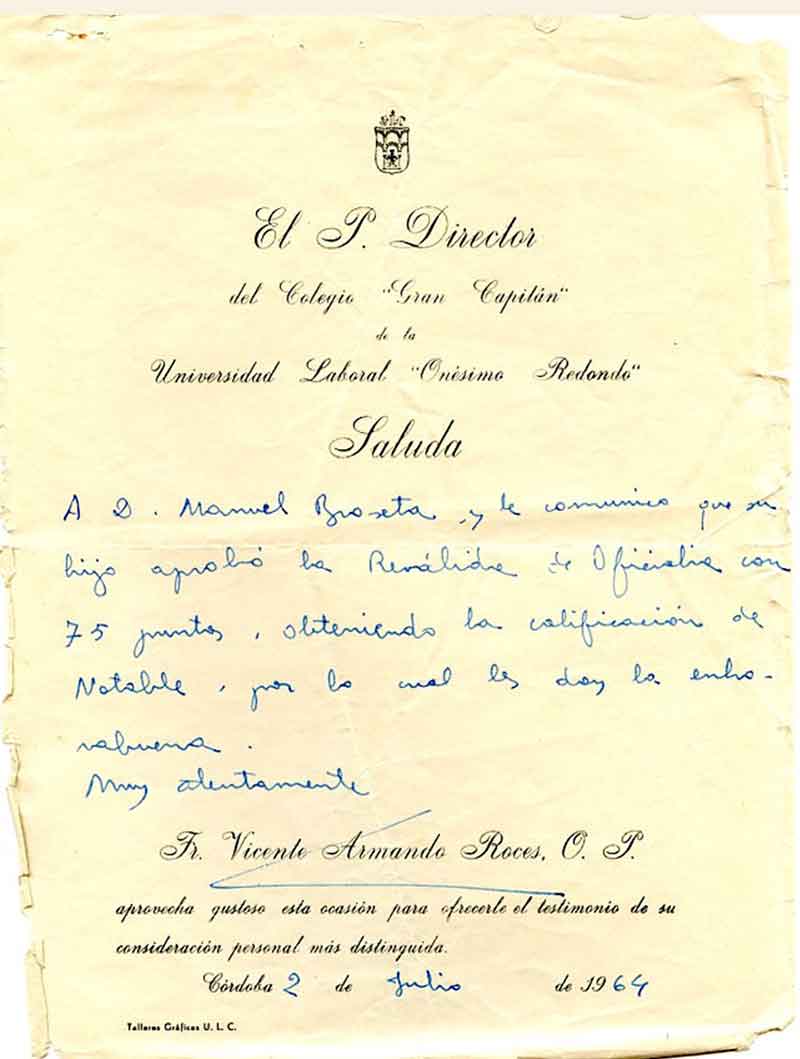 El P. Director
del Colegio "Gran Capitán"
de la
Universidad Laboral "Onésimo Redondo"
Saluda
A D. Manuel Broseta, y le comunico que su
hijo aprobó la Reválida de Oficialía con
75 puntos, obteniendo la calificación de
Notable, por lo cual les doy la enho-
rabuena.
Muy atentamente
Fr. Vicente Armando Roces, O. P.
aprovecha gustoso esta ocasión para ofrecerle el testimonio de su
consideración personal más distinguida.
Córdoba 2 de Julio de 1964
Talleres Gráficos U. L. C.